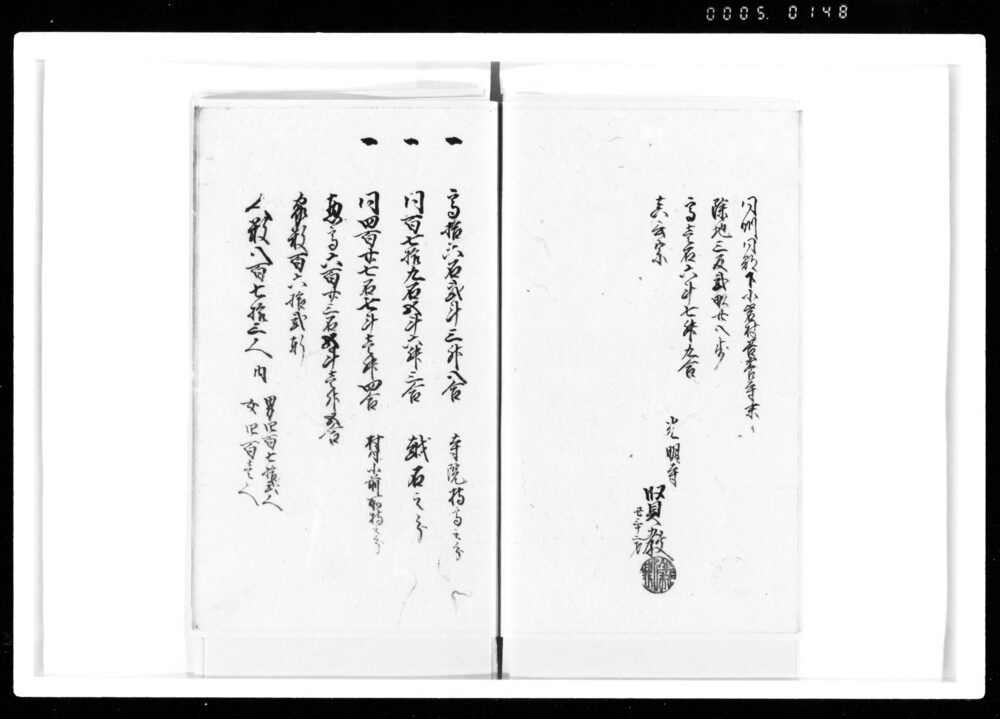 0005. 0148
同州同郡下小
除地三反弐畝廿八歩
高壱石六斗七升九合
真言宗
光明寺
賢教
一 高拾六石弐斗三升八合 寺院持高之分
一 同百七拾九石五斗六升三合 越石之分
一 同四百廿七石七斗壱升四合 村小前所持之分
惣高六百廿三石五斗壱升五合
家数百六拾弐軒
人数八百七拾三人 内
男四百七拾弐人
女四百壱人